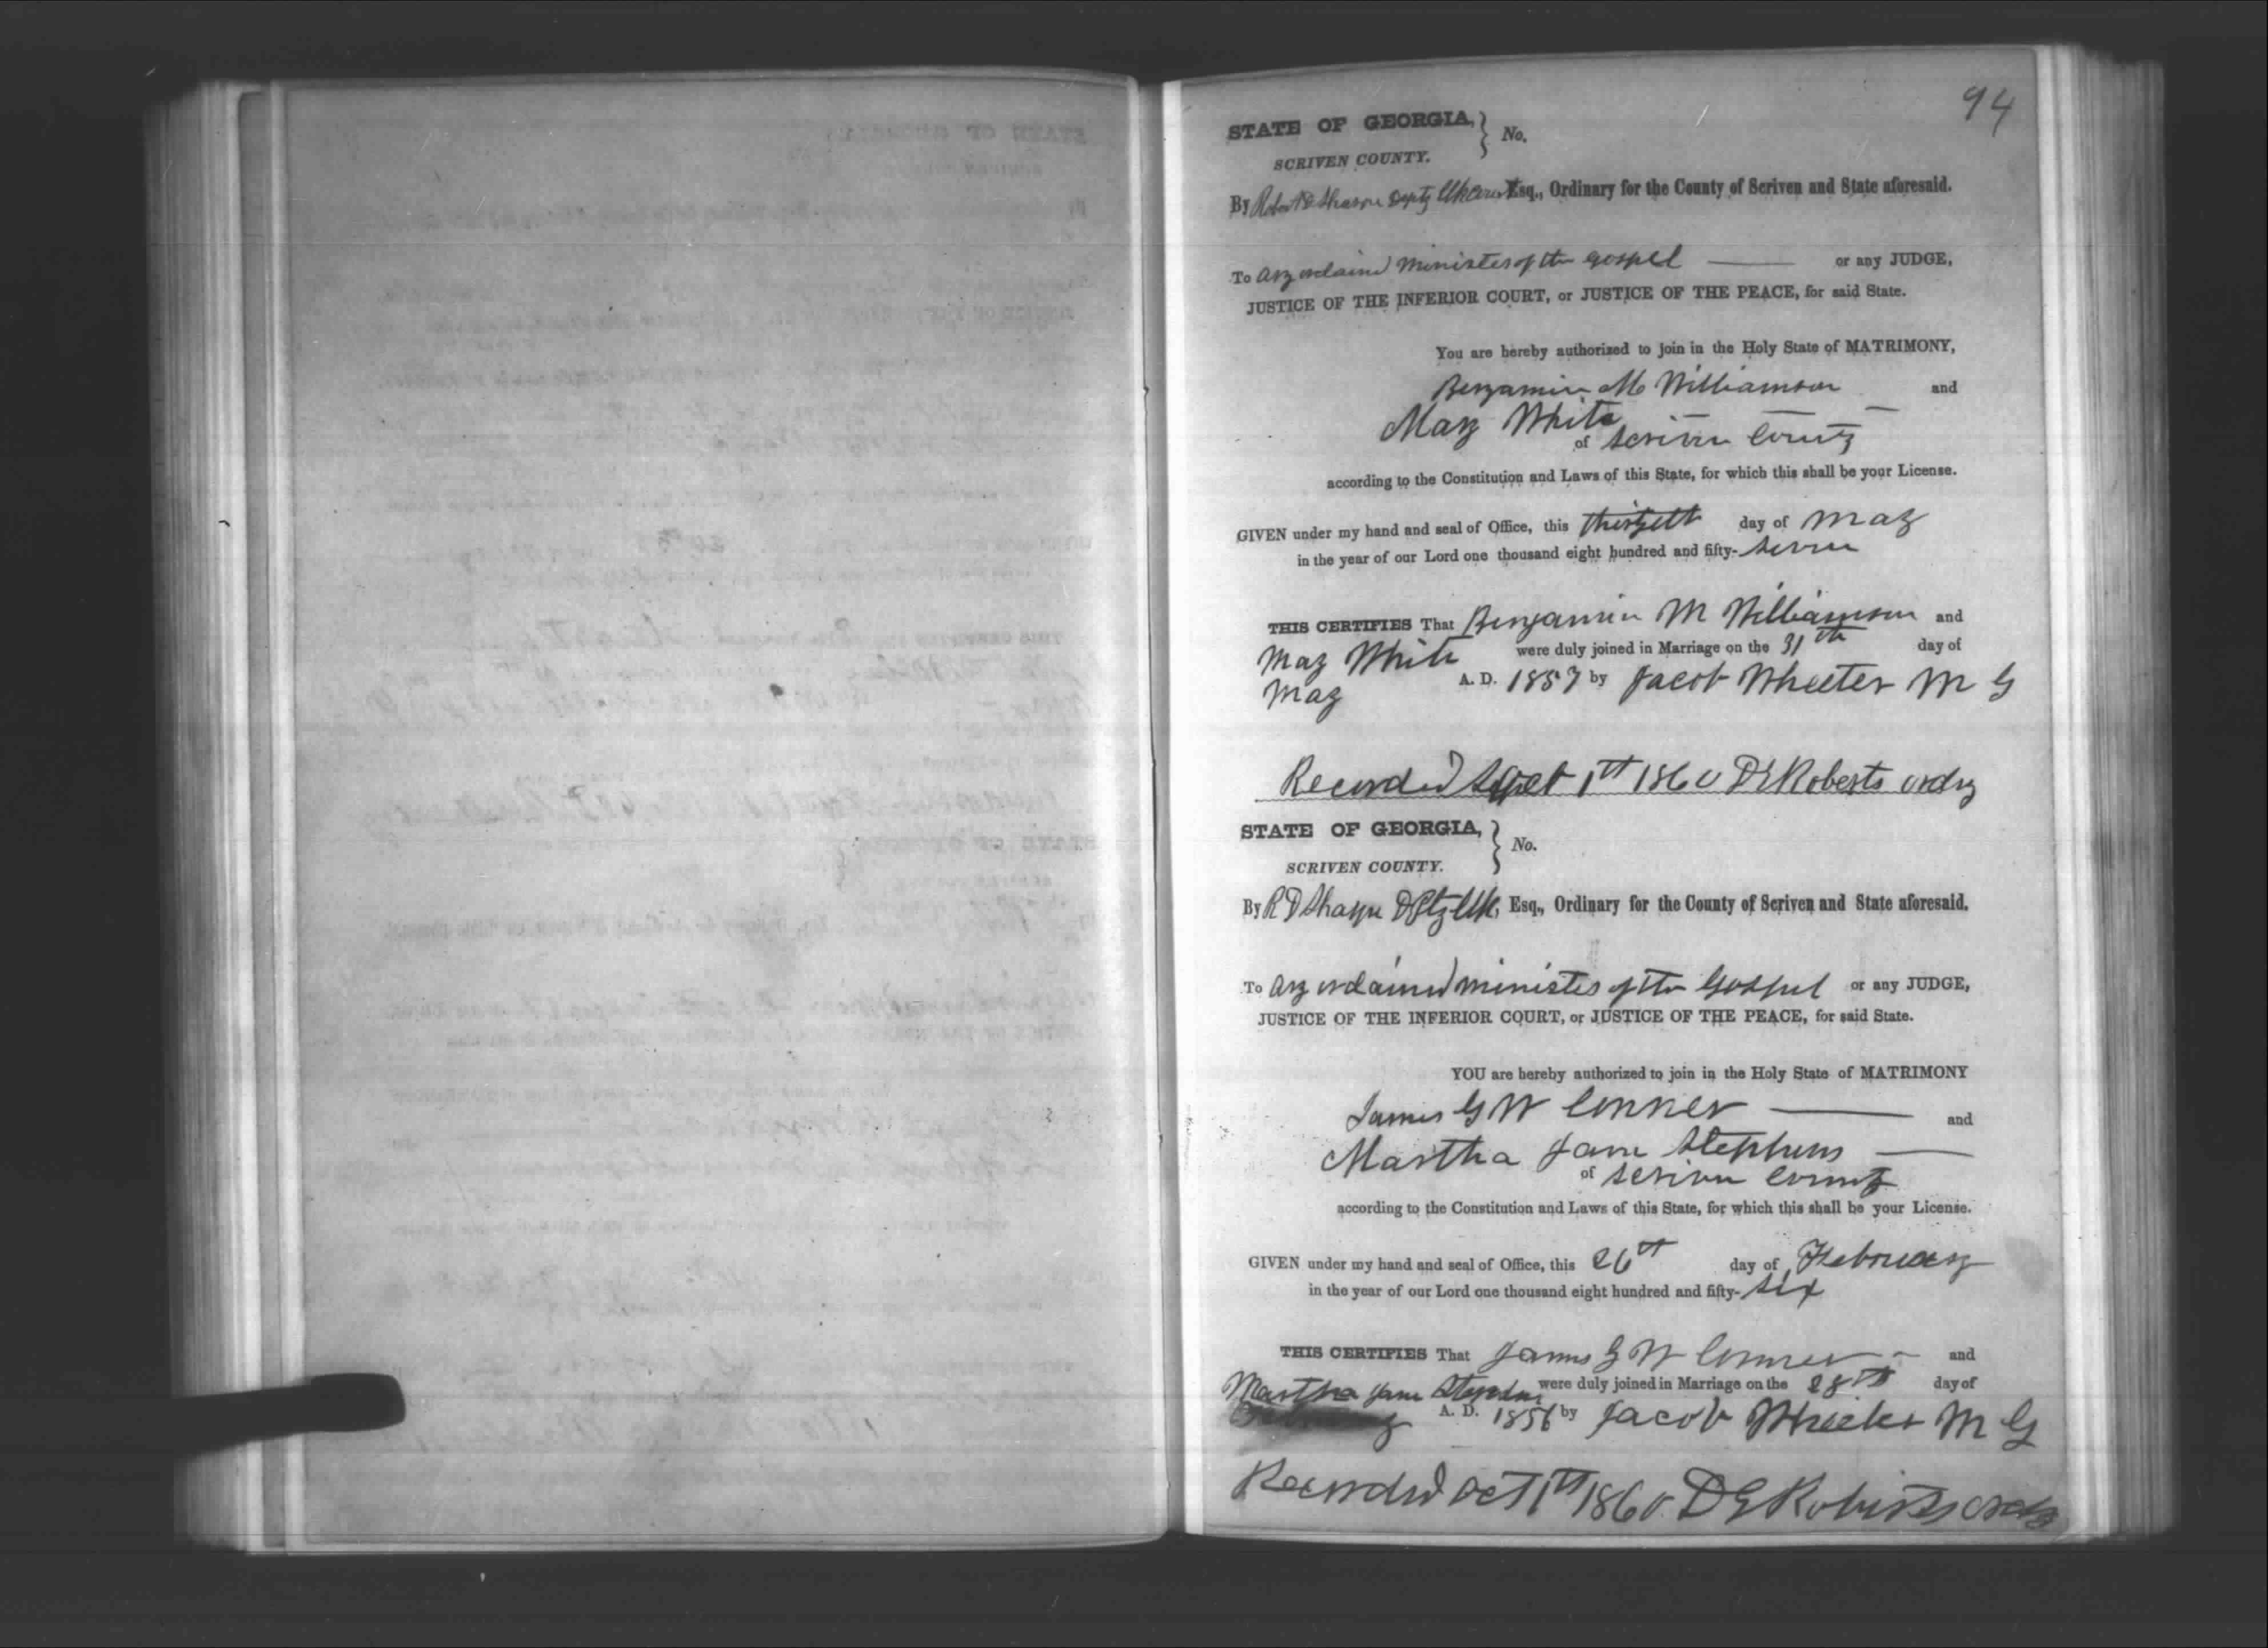 94
STATE OF GEORGIA, } No.
SCRIVEN COUNTY.
By Robert D Sharpe Depty Clk Court Esq., Ordinary for the County of Scriven and State aforesaid.
To any ordained Minister of the Gospel or any JUDGE,
JUSTICE OF THE INFERIOR COURT, or JUSTICE OF THE PEACE, for said State.
You are hereby authorized to join in the Holy State of MATRIMONY,
Benjamin M Williamson and
Mary White
of Scriven County
according to the Constitution and Laws of this State, for which this shall be your License.
GIVEN under my hand and seal of Office, this thirtyeth day of May
in the year of our Lord one thousand eight hundred and fifty-seven
THIS CERTIFIES That Benjamin M Williamson and
Mary White were duly joined in Marriage on the 31th day of
May A. D. 1857 by Jacob Wheeler M G
Recorded Sept 1th 1860 D E Roberts ordy
STATE OF GEORGIA, } No.
SCRIVEN COUNTY.
By R D Sharpe Dpty Clk, Esq., Ordinary for the County of Scriven and State aforesaid.
To any ordained minister of the Gospel or any JUDGE,
JUSTICE OF THE INFERIOR COURT, or JUSTICE OF THE PEACE, for said State.
YOU are hereby authorized to join in the Holy State of MATRIMONY
James G W Conner and
Martha Jane Stephens
of Scriven County
according to the Constitution and Laws of this State, for which this shall be your License.
GIVEN under my hand and seal of Office, this 26th day of February
in the year of our Lord one thousand eight hundred and fifty-six
THIS CERTIFIES That James G W Conner and
Martha Jane Stephens were duly joined in Marriage on the 28th day of
A. D. 1856 by Jacob Wheeler M G
Recorded Oct 1th 1860 D E Roberts ordy